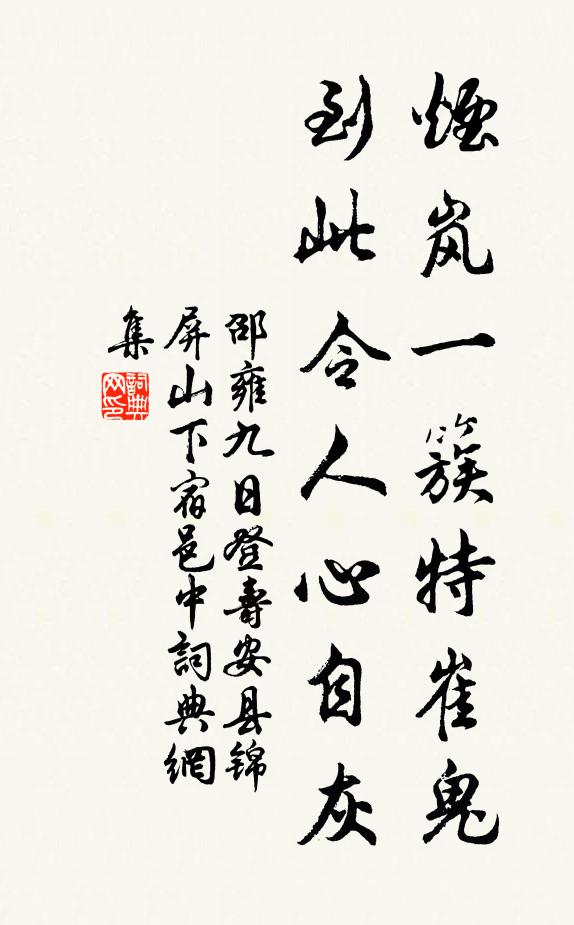 煙岚一簇特崔鬼
到此令人心自灰
邵雍九日登壽安县锦
屏山下宿邑中詞典網
集
詞典
网印